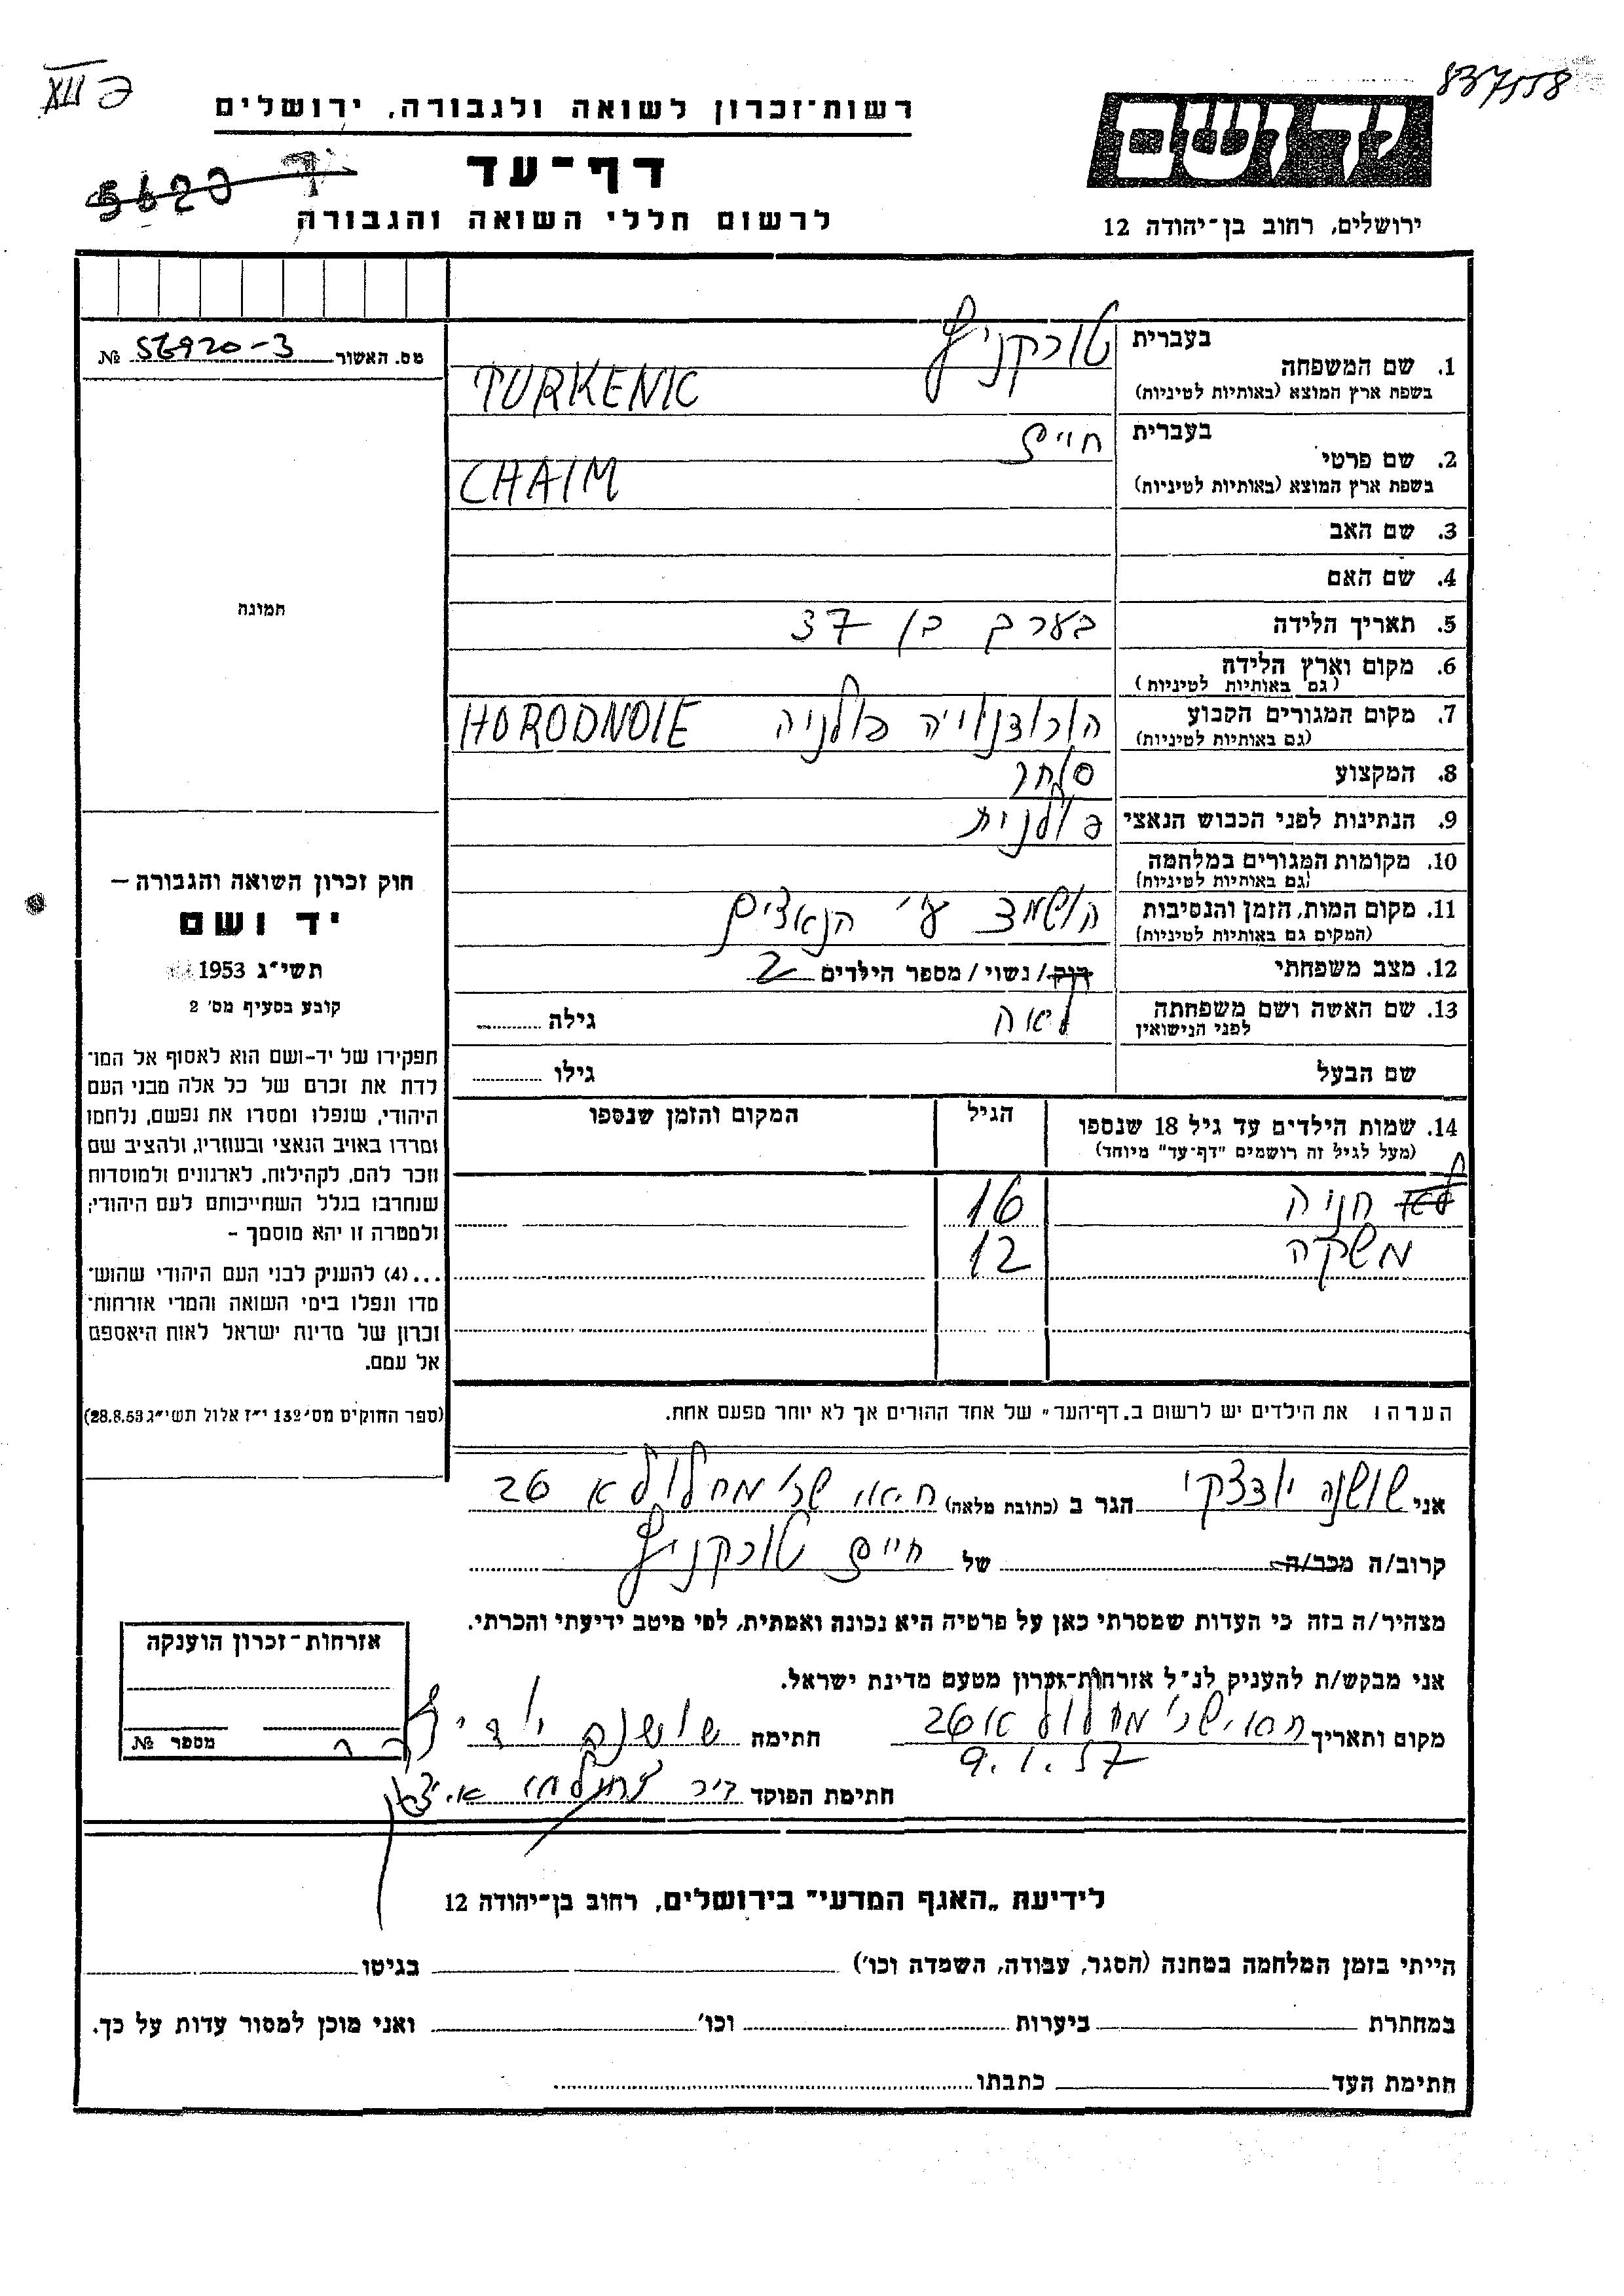 837558
XII
רשות־זכרון לשואה ולגבורה, ירושלים
יד ושם
דף־עד
5620
לרשום חללי השואה והגבורה
ירושלים, רחוב בן־יהודה 12
מס. האשור 56920-3 №
בעברית טורקניץ
1. שם המשפחה
בשפת ארץ המוצא (באותיות לטיניות) TURKENIC
בעברית חיים
2. שם פרטי
בשפת ארץ המוצא (באותיות לטיניות) CHAIM
3. שם האב
4. שם האם
5. תאריך הלידה בערך בן 37
6. מקום וארץ הלידה
(גם באותיות לטיניות)
7. מקום המגורים הקבוע הורודנוייה פולניה HORODNOIE
(גם באותיות לטיניות)
8. המקצוע סוחר
9. הנתינות לפני הכבוש הנאצי פולנית
10. מקומות המגורים במלחמה
(גם באותיות לטיניות)
11. מקום המות, הזמן והנסיבות הושמד ע"י הנאצים
(המקום גם באותיות לטיניות)
12. מצב משפחתי רוק / נשוי / מספר הילדים 2
13. שם האשה ושם משפחתה לאה גילה
לפני הנישואין
שם הבעל גילו
14. שמות הילדים עד גיל 18 שנספו הגיל המקום והזמן שנספו
(מעל לגיל זה רושמים "דף־עד" מיוחד)
חניה 16
משקה 12
הערה: את הילדים יש לרשום ב„דף־העד" של אחד ההורים אך לא יותר מפעם אחת.
תמונה
חוק זכרון השואה והגבורה —
יד ושם
תשי"ג 1953
קובע בסעיף מס' 2
תפקידו של יד-ושם הוא לאסוף אל המו־
לדת את זכרם של כל אלה מבני העם
היהודי, שנפלו ומסרו את נפשם, נלחמו
ומרדו באויב הנאצי ובעוזריו, ולהציב שם
וזכר להם, לקהילות, לארגונים ולמוסדות
שנחרבו בגלל השתייכותם לעם היהודי;
ולמטרה זו יהא מוסמך —
...(4) להעניק לבני העם היהודי שהוש־
מדו ונפלו בימי השואה והמרי אזרחות־
זכרון של מדינת ישראל לאות היאספם
אל עמם.
(ספר החוקים מס' 132 י"ז אלול תשי"ג 28.8.53)
אני שושנה הגר ב (כתובת מלאה) 26
קרוב/ה מכר/ה של חיים טורקניץ
מצהיר/ה בזה כי העדות שמסרתי כאן על פרטיה היא נכונה ואמתית, לפי מיטב ידיעתי והכרתי.
אני מבקש/ת להעניק לנ"ל אזרחות־זכרון מטעם מדינת ישראל.
מקום ותאריך 26 חתימה שושנה
9.1.57
חתימת הפוקד
אזרחות־זכרון הוענקה
מספר №
לידיעת „האגף המדעי" בירושלים, רחוב בן־יהודה 12
הייתי בזמן המלחמה במחנה (הסגר, עבודה, השמדה וכו') בגיטו
במחתרת ביערות וכו' ואני מוכן למסור עדות על כך.
חתימת העד כתבתו